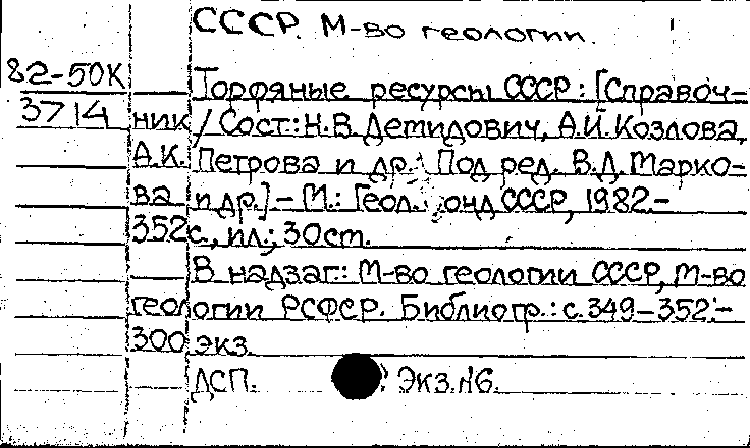 СССР. М-во геологии.
82-50К Торфяные ресурсы СССР: [Справоч-
3714 ник / Сост.: Н.В. Демидович, А.И. Козлова,
А.К. Петрова и др.; Под ред. В.Д. Марко-
ва и др.] - М.: Геолфонд СССР, 1982.-
352с., ил.; 30ст.
В надзаг.: М-во геологии СССР, М-во
геологии РСФСР. Библиогр.: с.349-352.-
300 экз.
ДСП. Экз.№6.